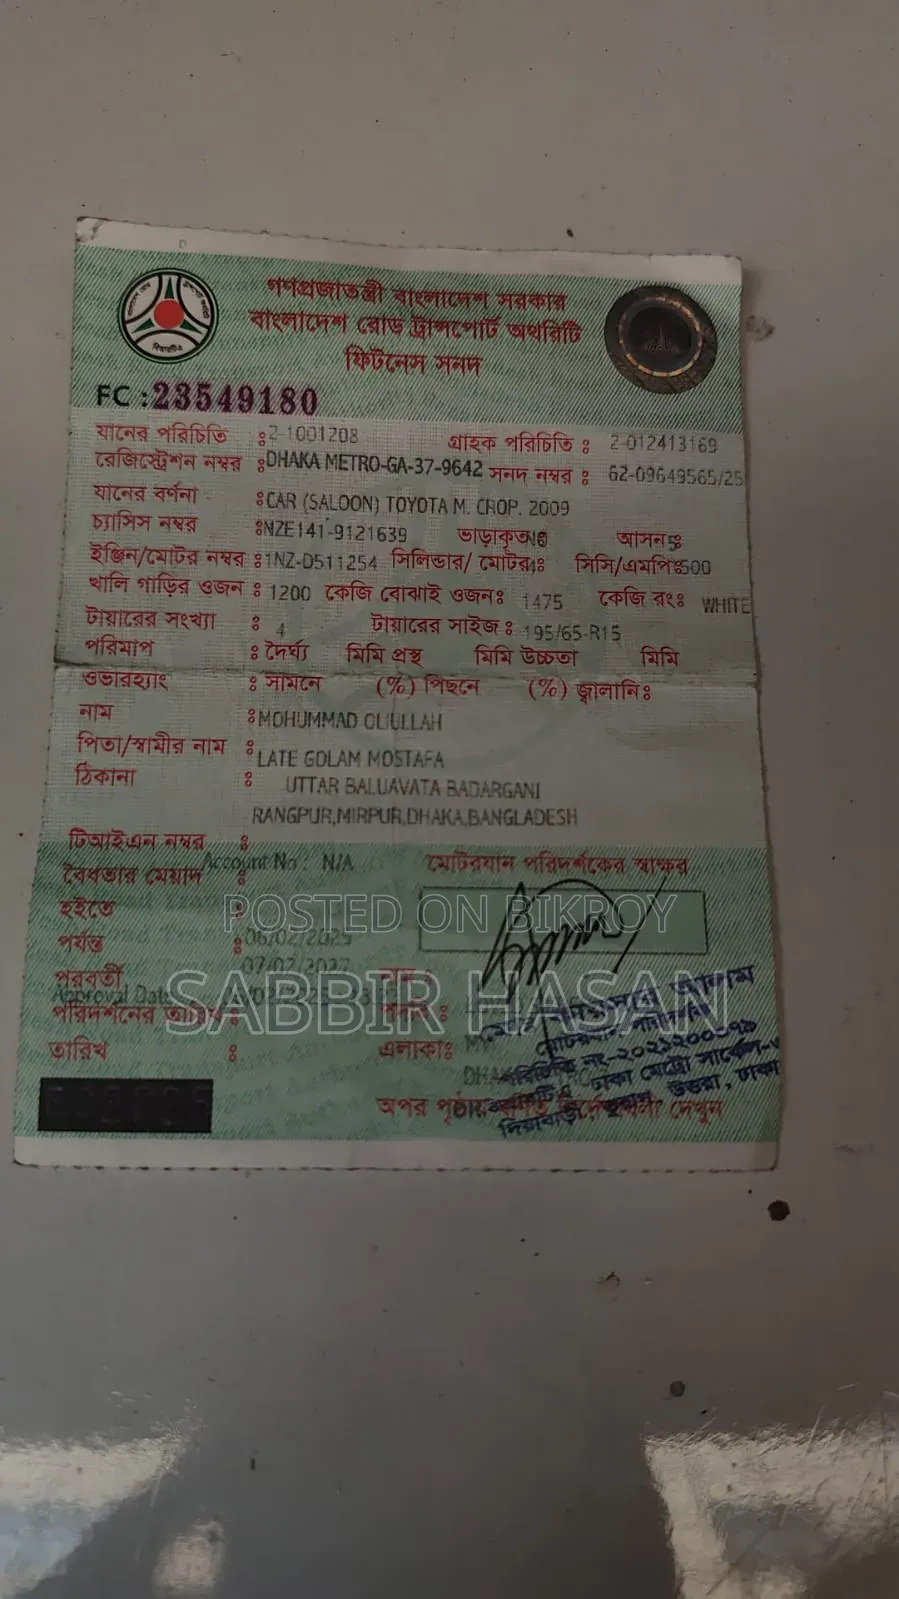 গণপ্রজাতন্ত্রী বাংলাদেশ সরকার
বাংলাদেশ রোড ট্রান্সপোর্ট অথরিটি
ফিটনেস সনদ
বিআরটিএ
FC : 23549180
যানের পরিচিতি : 2-1001208 গ্রাহক পরিচিতি : 2-012413169
রেজিস্ট্রেশন নম্বর : DHAKA METRO-GA-37-9642 সনদ নম্বর : 62-09649565/25
যানের বর্ণনা : CAR (SALOON) TOYOTA M. CROP. 2009
চ্যাসিস নম্বর : NZE141-9121639 ভাড়াকৃত আসন: 5
ইঞ্জিন/মোটর নম্বর : 1NZ-D511254 সিলিন্ডার/ মোটর: 4 সিসি/এমপি: 500
খালি গাড়ির ওজন : 1200 কেজি বোঝাই ওজন: 1475 কেজি রং: WHITE
টায়ারের সংখ্যা : 4 টায়ারের সাইজ : 195/65-R15
পরিমাপ : দৈর্ঘ্য মিমি প্রস্থ মিমি উচ্চতা মিমি
ওভারহ্যাং : সামনে (%) পিছনে (%) জ্বালানি:
নাম : MOHUMMAD OLIULLAH
পিতা/স্বামীর নাম : LATE GOLAM MOSTAFA
ঠিকানা : UTTAR BALUAVATA BADARGANJ
RANGPUR,MIRPUR,DHAKA,BANGLADESH
টিআইএন নম্বর :
Account No : N/A মোটরযান পরিদর্শকের স্বাক্ষর
বৈধতার মেয়াদ :
হইতে :
POSTED ON BIKROY
পর্যন্ত : 06/02/2025
পরবর্তী 07/02/2027 নাম :
Approval Date
SABBIR HASAN
পরিদর্শনের তারিখ :
তারিখ : এলাকা:
মোটরযান পরিদর্শক
পরিচিতি নং-২০২১২০০০৭৯
ঢাকা মেট্রো সার্কেল-
দিয়াবাড়ী, তুরাগ, উত্তরা, ঢাকা
অপর পৃষ্ঠায় দেখুন